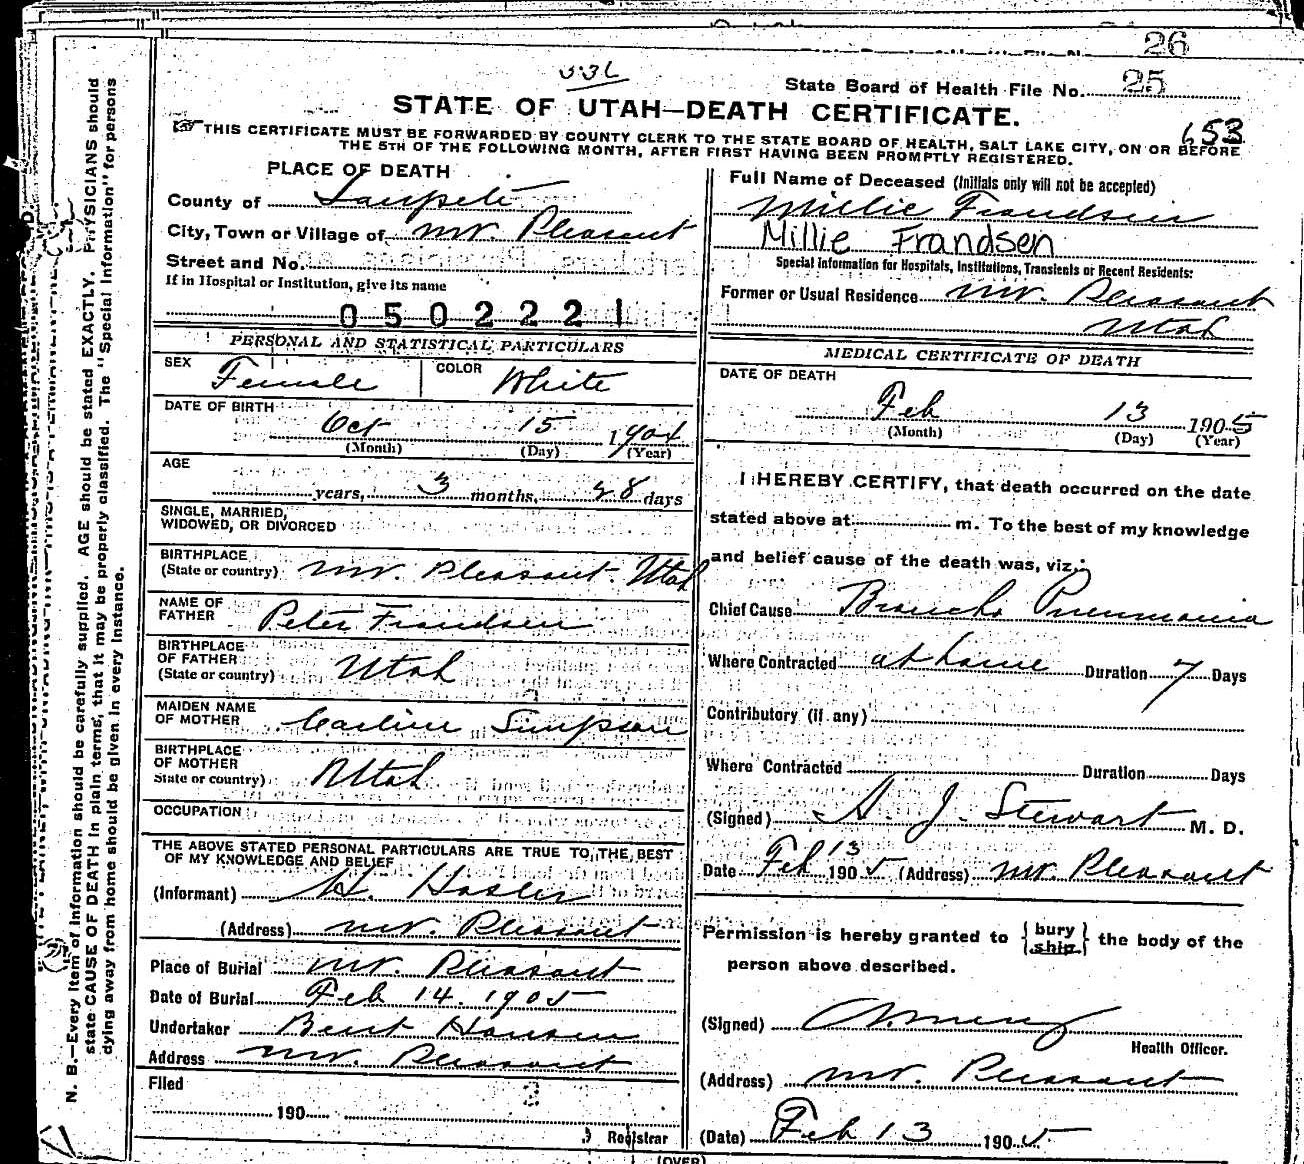 26
State Board of Health File No. 25
STATE OF UTAH—DEATH CERTIFICATE.
653
THIS CERTIFICATE MUST BE FORWARDED BY COUNTY CLERK TO THE STATE BOARD OF HEALTH, SALT LAKE CITY, ON OR BEFORE
THE 5TH OF THE FOLLOWING MONTH, AFTER FIRST HAVING BEEN PROMPTLY REGISTERED.
PLACE OF DEATH
County of Sanpete
City, Town or Village of Mt. Pleasant
Street and No.
If in Hospital or Institution, give its name
0 5 0 2 2 2 1
Full Name of Deceased (Initials only will not be accepted)
Millie Frandsen
Millie Frandsen
Special Information for Hospitals, Institutions, Transients or Recent Residents:
Former or Usual Residence Mt. Pleasant
Utah
PERSONAL AND STATISTICAL PARTICULARS
SEX Female COLOR White
DATE OF BIRTH
Oct 15 1904
(Month) (Day) (Year)
AGE
years, 3 months, 28 days
SINGLE, MARRIED,
WIDOWED, OR DIVORCED
BIRTHPLACE
(State or country) Mt. Pleasant. Utah
NAME OF
FATHER Peter Frandsen
BIRTHPLACE
OF FATHER
(State or country) Utah
MAIDEN NAME
OF MOTHER Simpson
BIRTHPLACE
OF MOTHER
State or country) Utah
OCCUPATION
THE ABOVE STATED PERSONAL PARTICULARS ARE TRUE TO THE BEST
OF MY KNOWLEDGE AND BELIEF
(Informant) H. Hasler
(Address) Mt. Pleasant
Place of Burial Mt. Pleasant
Date of Burial Feb 14. 1905
Undertaker Bent Hansen
Address Mt. Pleasant
Filed
190
Registrar
MEDICAL CERTIFICATE OF DEATH
DATE OF DEATH
Feb 13 1905
(Month) (Day) (Year)
I HEREBY CERTIFY, that death occurred on the date
stated above at m. To the best of my knowledge
and belief cause of the death was, viz.:
Chief Cause Broncho Pneumonia
Where Contracted at home Duration 7 Days
Contributory (if any)
Where Contracted Duration Days
(Signed) A. J. Stewart M. D.
Date Feb 13 1905 (Address) Mt. Pleasant
Permission is hereby granted to { bury ship } the body of the
person above described.
(Signed)
Health Officer.
(Address) Mt. Pleasant
(Date) Feb 13 1905
(OVER)
N. B.—Every item of information should be carefully supplied. AGE should be stated EXACTLY. PHYSICIANS should
state CAUSE OF DEATH in plain terms, that it may be properly classified. The "Special Information" for persons
dying away from home should be given in every instance.